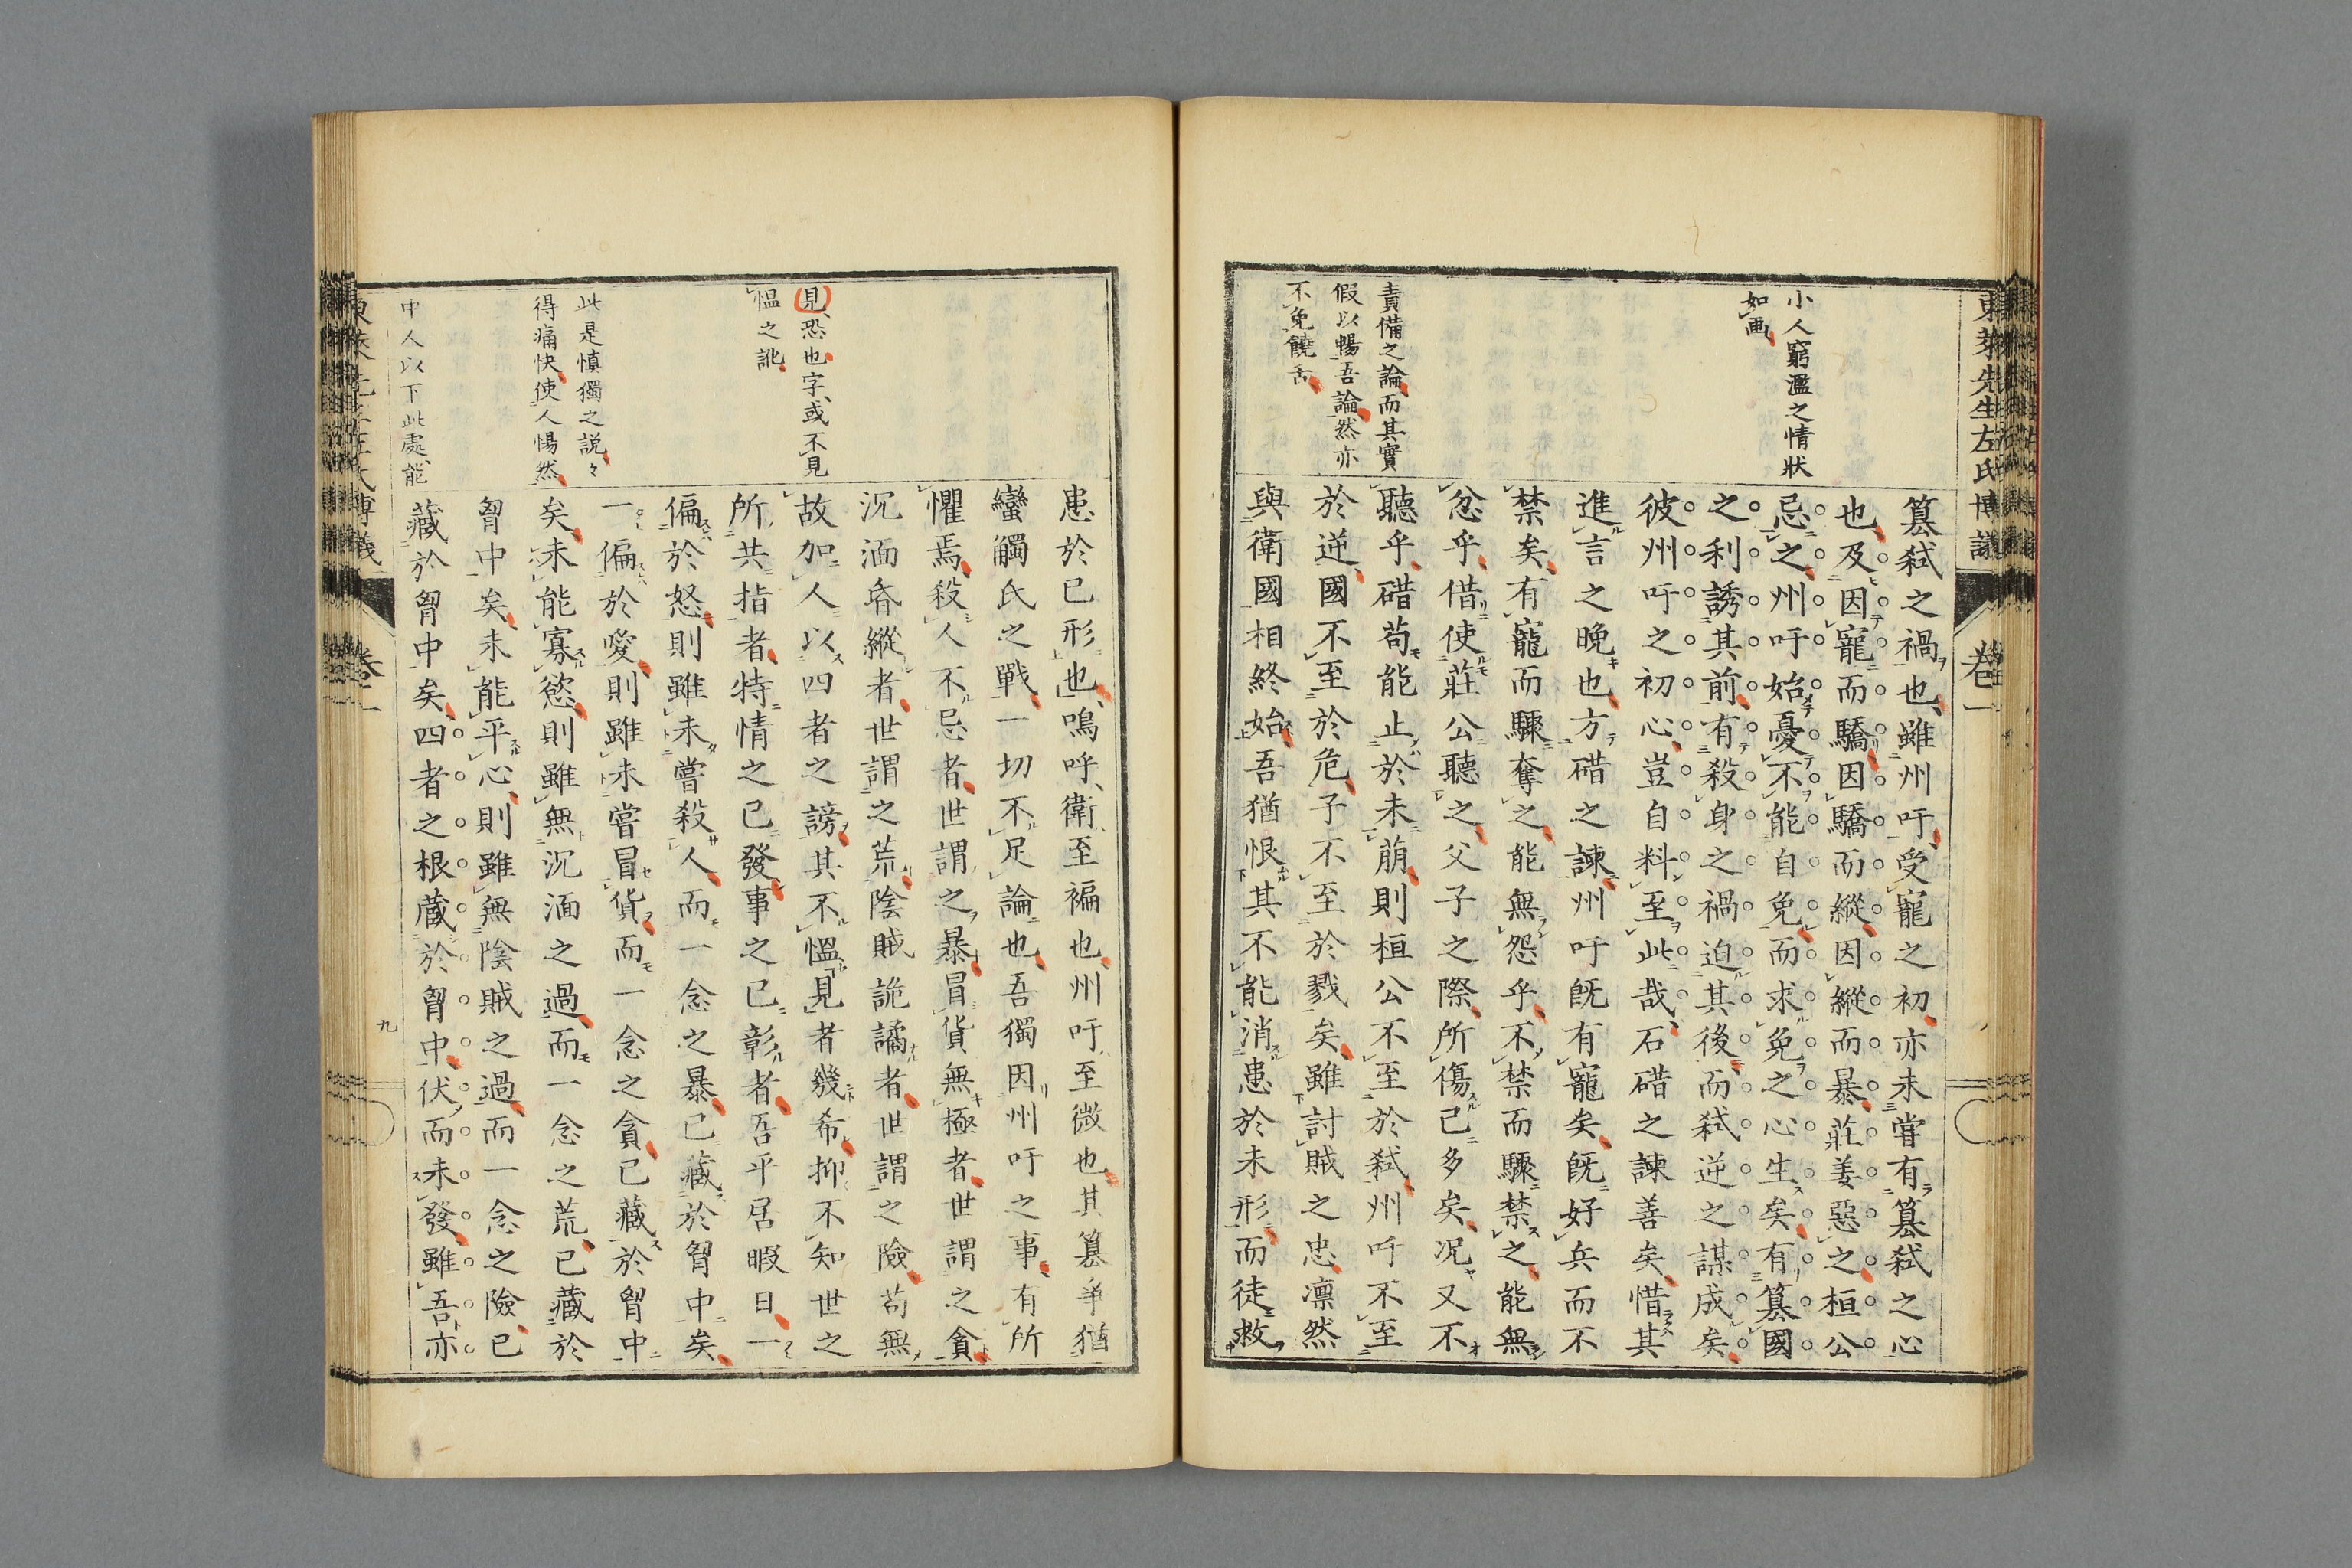 東萊先生左氏博議
卷一
小人窮濫之情狀
如画
責備之論而其實
假以暢吾論然亦
不免饒舌
篡弑之禍也雖州吁受寵之初亦未嘗有篡弑之心
也及因寵而驕因驕而縱因縱而暴莊姜惡之桓公
忌之州吁始憂不能自免而求免之心生矣有篡國
之利誘其前有殺身之禍迫其後而弑逆之謀成矣
彼州吁之初心豈自料至此哉石碏之諫善矣惜其
進言之晚也方碏之諫州吁既有寵矣既好兵而不
禁矣有寵而驟奪之能無怨乎不禁而驟禁之能無
忿乎借使莊公聽之父子之際所傷已多矣况又不
聽乎碏苟能止於未崩則桓公不至於弑州吁不至
於逆國不至於危子不至於戮矣雖討賊之忠凛然
與衛國相終始吾猶恨其不能消患於未形而徒救
患於已形也嗚呼衛至褊也州吁至微也其篡爭猶
蠻觸氏之戰一切不足論也吾獨因州吁之事有所
懼焉殺人不忌者世謂之暴冒貨無極者世謂之貪
沉湎昏縱者世謂之荒陰賊詭譎者世謂之險苟無
故加人以四者之謗其不慍見者幾希抑不知世之
所共指者特情之已發事之已彰者吾平居暇日一
偏於怒則雖未嘗殺人而一念之暴已藏於胷中矣
一偏於愛則雖未嘗冒貨而一念之貪已藏於胷中
矣未能寡慾則雖無沉湎之過而一念之荒已藏於
胷中矣未能平心則雖無陰賊之過而一念之險已
藏於胷中矣四者之根蔵於胷中伏而未發雖吾亦
見恐也字或不見
慍之訛
此是慎獨之説々
得痛快使人惕然
中人以下此處能
九